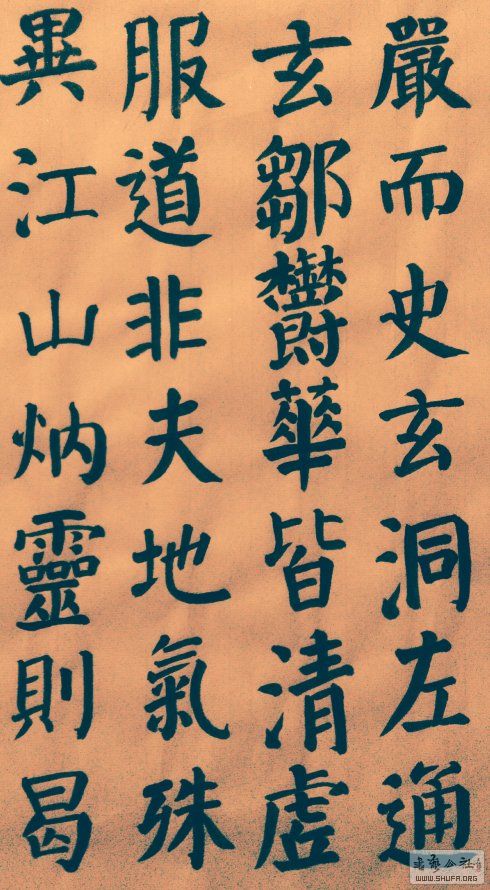 嚴而史玄洞左通
玄鄒欝華皆清虚
服道非夫地氣殊
異江山炳靈則曷
WWW.SHUFA.ORG